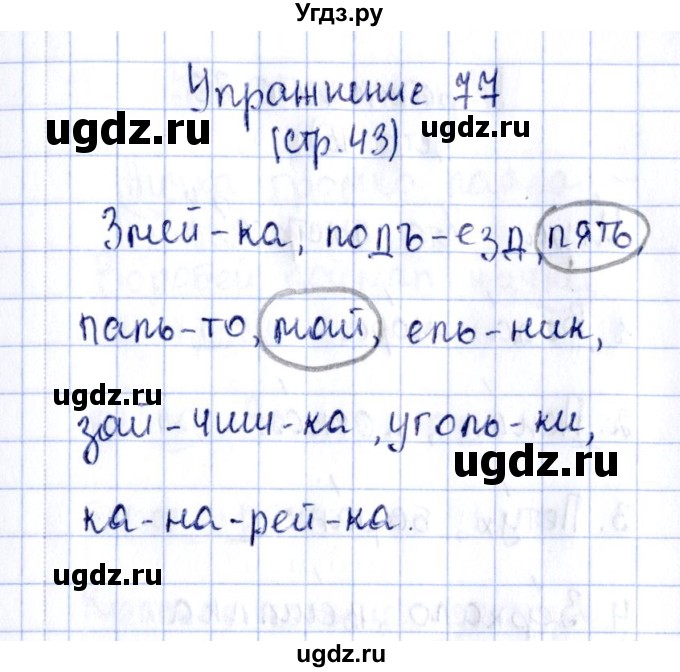 Угдз.ру
Упражнение 77
ugdz.ru
ugdz.ru
(стр.43)
Змей-ка, подъ-езд, пять,
паль-то, май, ель-ник,
ugdz.ru
зай-чиш-ка, уголь-ки,
ugdz.ru
ка-на-рей-ка.
ugdz.ru
ugdz.ru